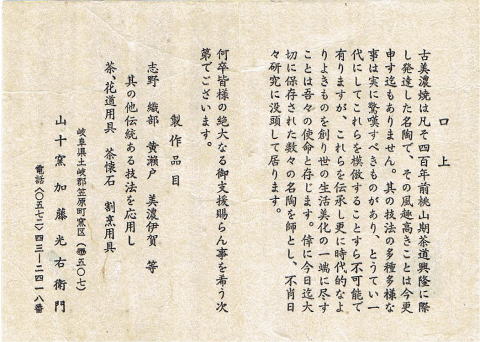 口上
古美濃焼は凡そ四百年前桃山期茶道興隆に際
し発達した名陶で、その風趣高きことは今更
申す迄もありません。其の技法の多種多様な
事は実に驚嘆すべきものがあり、とうてい一
代にしてこれらを模倣することすら不可能で
有りますが、これらを伝承し更に時代的なよ
りよきものを創り世の生活美化の一端に尽す
ことは吾々の使命と存じます。倖に今日迄大
切に保存された数々の名陶を師とし、不肖日
々研究に没頭して居ります。
何卒皆様の絶大なる御支援賜らん事を希う次
第でございます。
製作品目
志野 織部 黄瀬戸 美濃伊賀 等
其の他伝統の技法を応用し
茶、花道用具 茶懐石 割烹用具
岐阜県土岐郡笠原町窯区(〠五〇七)
山十窯 加藤光右衛門
電話(〇五七二)四三―二四一八番